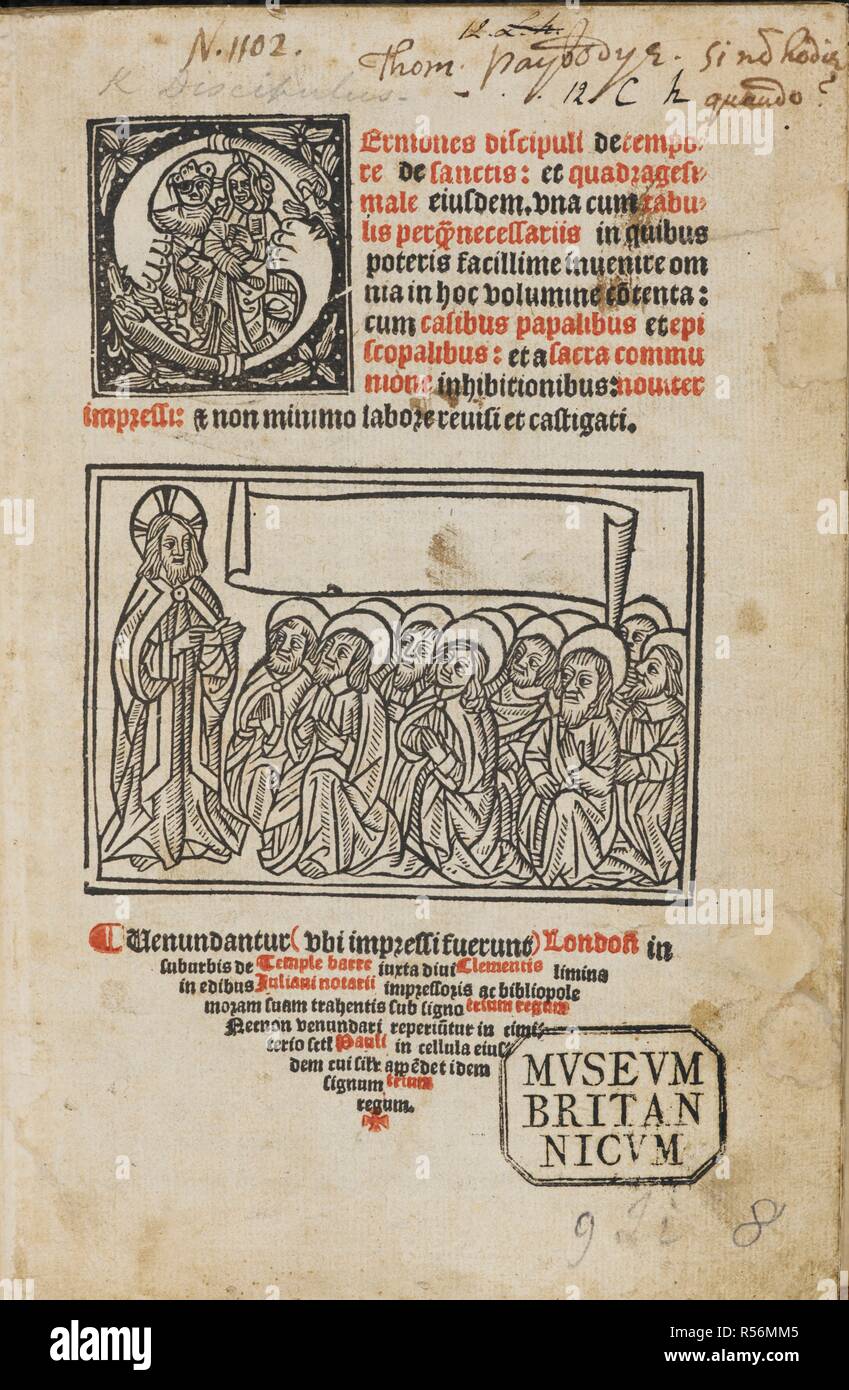 N. 1102.
12. L. h.
Thom. Si nō hodie
K Discipulus.
12. C h quando?
Sermones discipuli de tempo-
re de sanctis: et quadragesi-
male eiusdem. vna cum tabu-
lis perq̄necessariis in quibus
poteris facillime inuenire om
nia in hoc volumine cōtenta:
cum casibus papalibus et epi
scopalibus: et a sacra commu
nione inhibitionibus: nouiter
impressi: & non minimo labore reuisi et castigati.
¶ Uenundantur (vbi impressi fuerunt) London̄ in
suburbis de Temple barre iuxta diui Clementis limina
in edibus Juliani notarii impressoris ac bibliopole
moram suam trahentis sub signo trium regum
Necnon venundari reperiūtur in cimi-
terio sctī Pauli in cellula eius-
dem cui silr appēdet idem
signum trium
regum.
MVSEVM
BRITAN
NICVM
9 8
alamy
Image ID: R56MM5
www.alamy.com